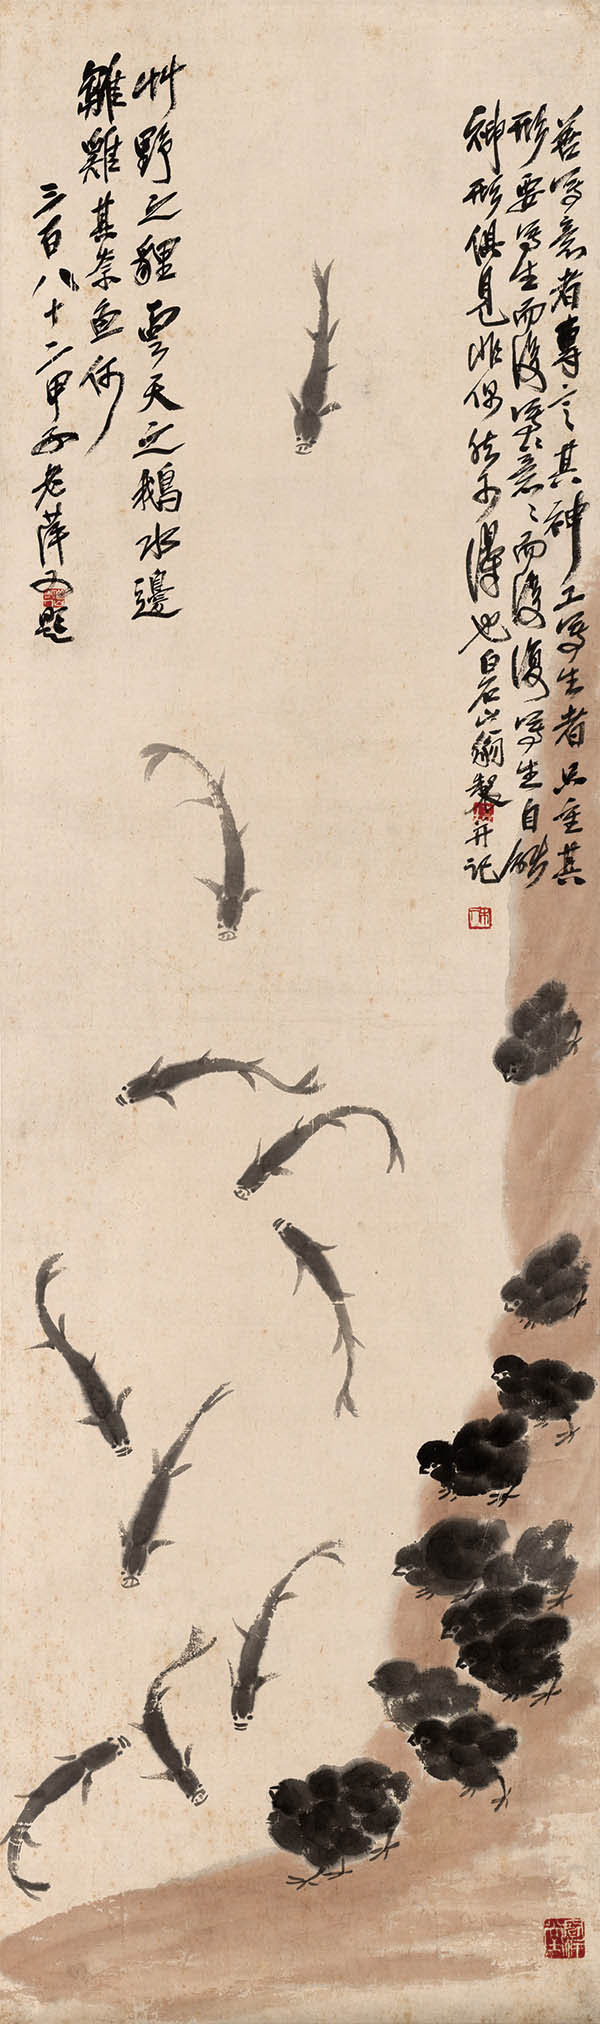 善写意者專言其神工写生者只重其
形要写生而後写意写意々而後復写生自能
神形俱見非偶然可得也白石山翁製并記
艸野之貍雲天之鵝水邊
雛雞其奈魚何
三百八十二甲子老萍又題